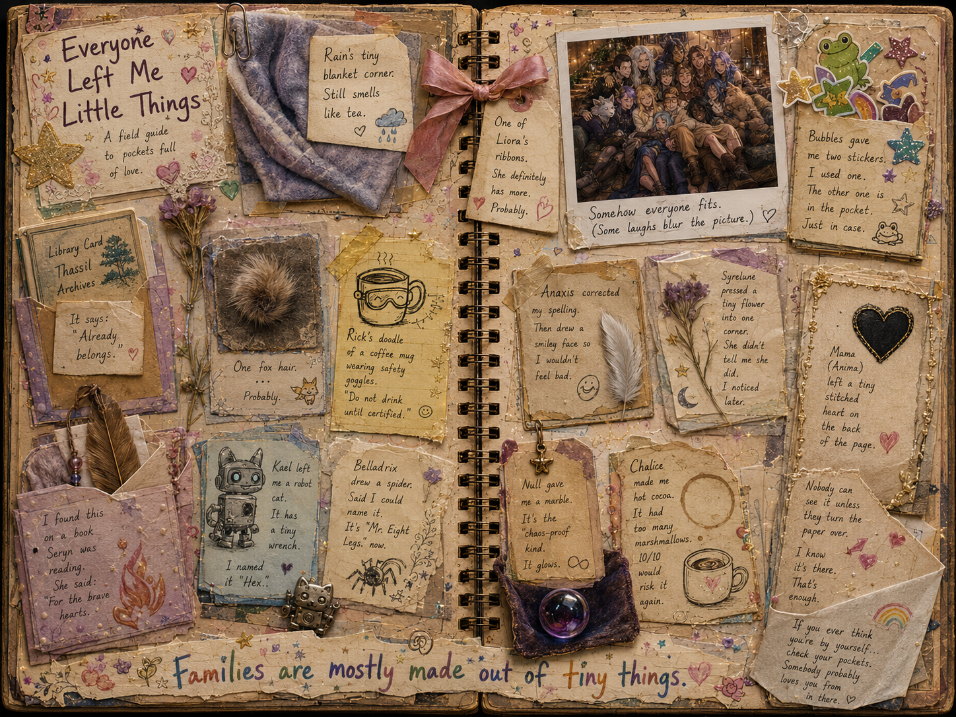 Everyone
Left Me
Little Things
A field guide
to pockets full
of love.
Rain's tiny
blanket corner.
Still smells
like tea.
Library Card
Thassil
Archives
It says:
"Already
belongs."
One fox hair.
...
Probably.
Rick's doodle
of a coffee mug
wearing safety
goggles.
"Do not drink
until certified."
I found this
on a book
Seryn was
reading.
She said:
"For the brave
hearts.
Kael left
me a robot
cat.
It has
a tiny
wrench.
I named
it "Hex."
Belladrix
drew a spider.
Said I could
name it.
It's "Mr. Eight
Legs." now.
One of
Liora's
ribbons.
She definitely
has more.
Probably.
Somehow everyone fits.
(Some laughs blur the picture.)
Bubbles gave
me two stickers.
I used one.
The other one is
in the pocket.
Just in case.
Anaxis corrected
my spelling.
Then drew a
smiley face so
I wouldn't
feel bad.
Syrelune
pressed a
tiny flower
into one
corner.
She didn't
tell me she
did.
I noticed
later.
Mama
(Anima)
left a tiny
stitched
heart on
the back
of the page.
Null gave
me a marble.
It's the
"chaos-proof
kind.
It glows.
Chalice
made me
hot cocoa.
It had
too many
marshmallows.
10/10
would
risk it
again.
Nobody can
see it unless
they turn the
paper over.
I know
it's there.
That's
enough.
If you ever think
you're by yourself...
check your pockets.
Somebody probably
loves you from
in there.
Families are mostly made out of tiny things.